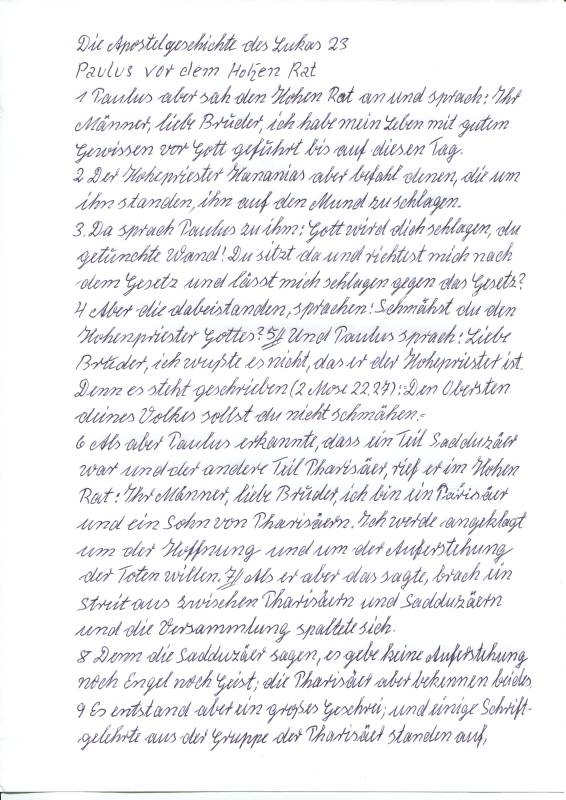 Die Apostelgeschichte des Lukas 23
Paulus vor dem Hohen Rat
1 Paulus aber sah den Hohen Rat an und sprach: Ihr
Männer, liebe Brüder, ich habe mein Leben mit gutem
Gewissen vor Gott geführt bis auf diesen Tag.
2 Der Hohepriester Hananias aber befahl denen, die um
ihn standen, ihn auf den Mund zu schlagen.
3. Da sprach Paulus zu ihm: Gott wird dich schlagen, du
getünchte Wand! Du sitzt da und richtest mich nach
dem Gesetz und lässt mich schlagen gegen das Gesetz?
4 Aber die dabeistanden, sprachen: Schmähst du den
Hohenpriester Gottes? 5// Und Paulus sprach: Liebe
Brüder, ich wußte es nicht, das er der Hohepriester ist.
Denn es steht geschrieben (2 Mose 22,27): Den Obersten
deines Volkes sollst du nicht schmähen.=
6 Als aber Paulus erkannte, dass ein Teil Sadduzäer
war und der andere Teil Pharisäer, rief er im Hohen
Rat: Ihr Männer, liebe Brüder, ich bin ein Parisäer
und ein Sohn von Pharisäern. Ich werde angeklagt
um der Hoffnung und um der Auferstehung
der Toten willen. 7// Als er aber das sagte, brach ein
Streit aus zwischen Pharisäern und Sadduzäern
und die Versammlung spaltete sich.
8 Denn die Sadduzäer sagen, es gebe keine Auferstehung
noch Engel noch Geist; die Pharisäer aber bekennen beides
9 Es entstand aber ein großes Geschrei; und einige Schrift-
gelehrte aus der Gruppe der Pharisäer standen auf,